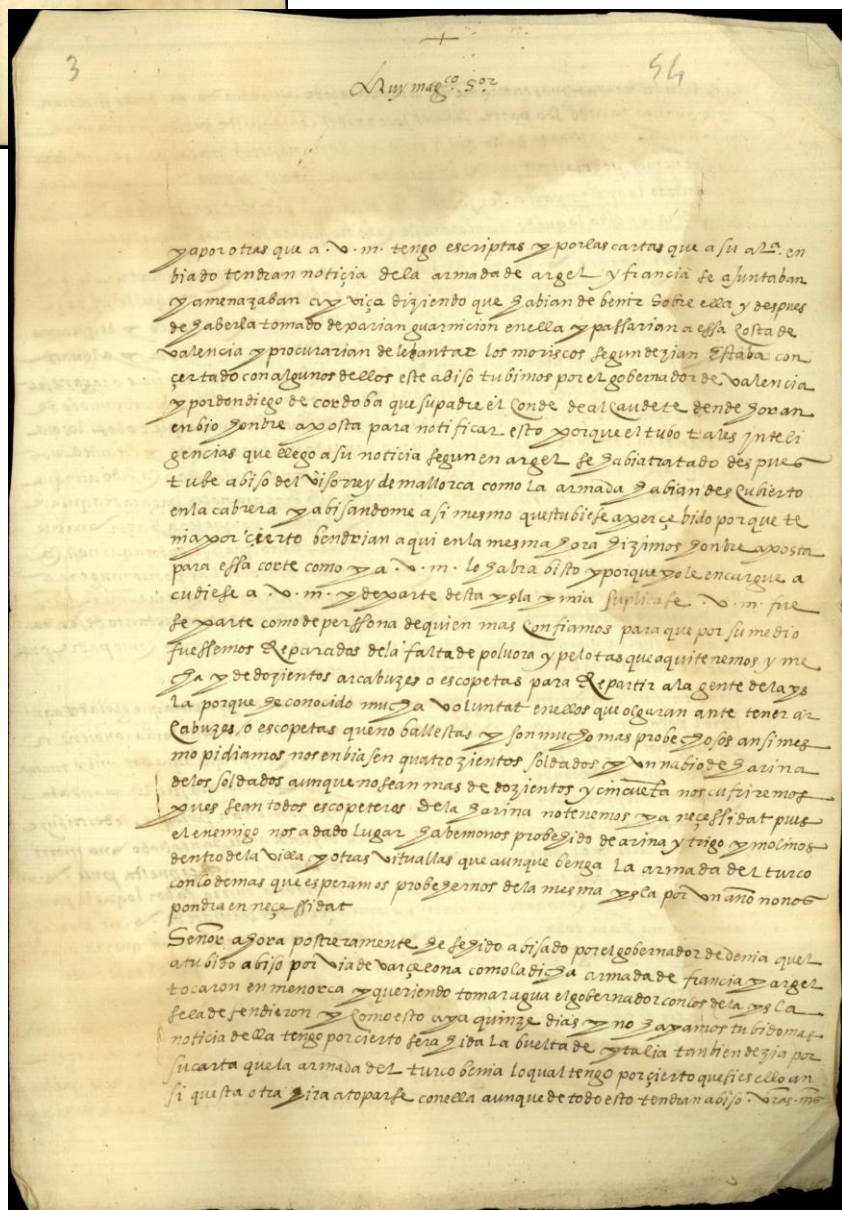 3
54
Muy mag.co S.or
ya por otras que a .v.m. tengo escriptas y por las cartas que a su al.a en
biado tendran notiçia dela armada de argel y francia se ajuntaban
y amenazaban a yviça diziendo que habian de benir sobre ella y despues
de haberla tomado dexarian guarnicion en ella y passarian a essa costa de
valencia y procurarian de lebantar los moriscos segun dezian estaba con
çertado con algunos dellos este abiso tubimos por el gobernador de valencia
y por don diego de cordoba que su padre el Conde de alcaudete dende horan
enbio honbre aposta para notificar esto porque el tubo tales inteli
gencias que llego a su noticia segun en argel se habia tratado despues
tube abiso del visorrey de mallorca como la armada habian descubierto
en la cabrera y abisandome asi mesmo questubiese aperçebido porque te
nia por çierto bendrian aqui en la mesma hora hizimos honbre aposta
para essa corte como ya .v.m. lo habra bisto y porque yo le encargue a
cudiese a .v.m. y de parte desta ysla y mia suplicase .v.m. fue
se parte como de perssona de quien mas confiamos para que por su medio
fuessemos Reparados dela falta de polvora y pelotas que aqui tenemos y me
cha y de dozientos arcabuzes o escopetas para Repartir a la gente de la ys
la porque he conocido mucha voluntat en ellos que olgaran ante tener ar
cabuzes o escopetas que no ballestas y son mucho mas probechosos ansi mes
mo pidiamos nos enbiasen quatrozientos soldados y un nabio de harina
de los soldados aunque no sean mas de dozientos y cincuenta nos cufriremos
pues sean todos escopeteros de la harina no tenemos ya neçessidat pues
el enemigo nos a dado lugar habemonos probehido de arina y trigo y molinos
dentro de la villa y otras vituallas que aunque benga la armada del turco
con lo demas que esperamos probehernos de la mesma ysla por un año no nos
pondra en neçessidat
Señor ahora postreramente he sehido abisado por el gobernador de denia quel
a tubido abiso por via de varçelona como la dicha armada de francia y argel
tocaron en menorca y queriendo tomar agua el gobernador con los de la ysla
se la defendieron y como esto aya quinze dias y no hayamos tubido mas
noticia della tengo por cierto sera hida la buelta de ytalia tanbien dezia por
su carta que la armada del turco benia lo qual tengo por çierto que si es ello an
si questa otra hira a toparse con ella aunque de todo esto tendran abiso .vras. mds